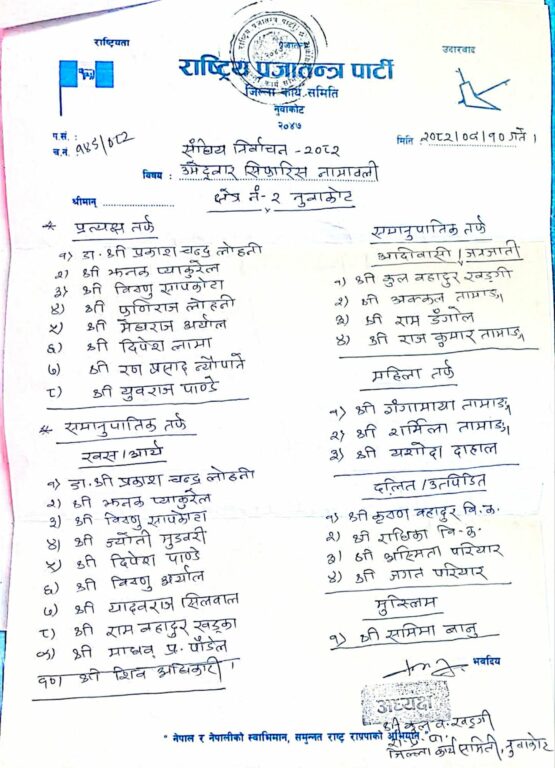 राष्ट्रियता
प्रजातन्त्र
उदारवाद
राष्ट्रिय प्रजातन्त्र पार्टी
जिल्ला कार्य समिति
नुवाकोट
२०४७
प.सं. :
च.नं. : १४६/०८२
मिति २०८२/०७/१० गते ।
संघिय निर्वाचन - २०८२
विषय : उमेद्वार सिफारिस नामावली
श्रीमान्
क्षेत्र नं- २ नुवाकोट
* प्रत्यक्ष तर्फ
१) डा. श्री प्रकाश चन्द्र लोहनी
२) श्री झनक प्याकुरेल
३) श्री विष्णु सापकोटा
४) श्री फणिराज लोहनी
५) श्री मेघराज अर्याल
६) श्री दिपेश लामा
७) श्री रण प्रसाद न्यौपाने
८) श्री युवराज पाण्डे
* समानुपातिक तर्फ
खस/आर्य
१) डा. श्री प्रकाश चन्द्र लोहनी
२) श्री झनक प्याकुरेल
३) श्री विष्णु सापकोटा
४) श्री ज्योती मुडवरी
५) श्री दिपेश पाण्डे
६) श्री विष्णु अर्याल
७) श्री यादवराज सिलवाल
८) श्री राम बहादुर खड्का
९) श्री माधव प्र. पौडेल
१०) श्री शिव अधिकारी ।
समानुपातिक तर्फ
आदीवासी/जनजाती
१) श्री कुल बहादुर खड्गी
२) श्री अक्कल तामाङ्ग
३) श्री राम डँगोल
४) श्री राज कुमार तामाङ्ग
महिला तर्फ
१) श्री गँगामाया तामाङ्ग
२) श्री शर्मिला तामाङ्ग
३) श्री यशोदा दाहाल
दलित/उत्पिडित
१) श्री कृष्ण बहादुर बि.क.
२) श्री राधिका बि.क.
३) श्री अस्मिता परियार
४) श्री जगत परियार
मुस्लिम
१) श्री समिमा बानु
भवदिय
अध्यक्ष
श्री कुल ब. खड्गी
रा. प्र. पा.
जिल्ला कार्य समिती, नुवाकोट
" नेपाल र नेपालीको स्वाभिमान, समुन्नत राष्ट्र राप्रपाको अभियान "